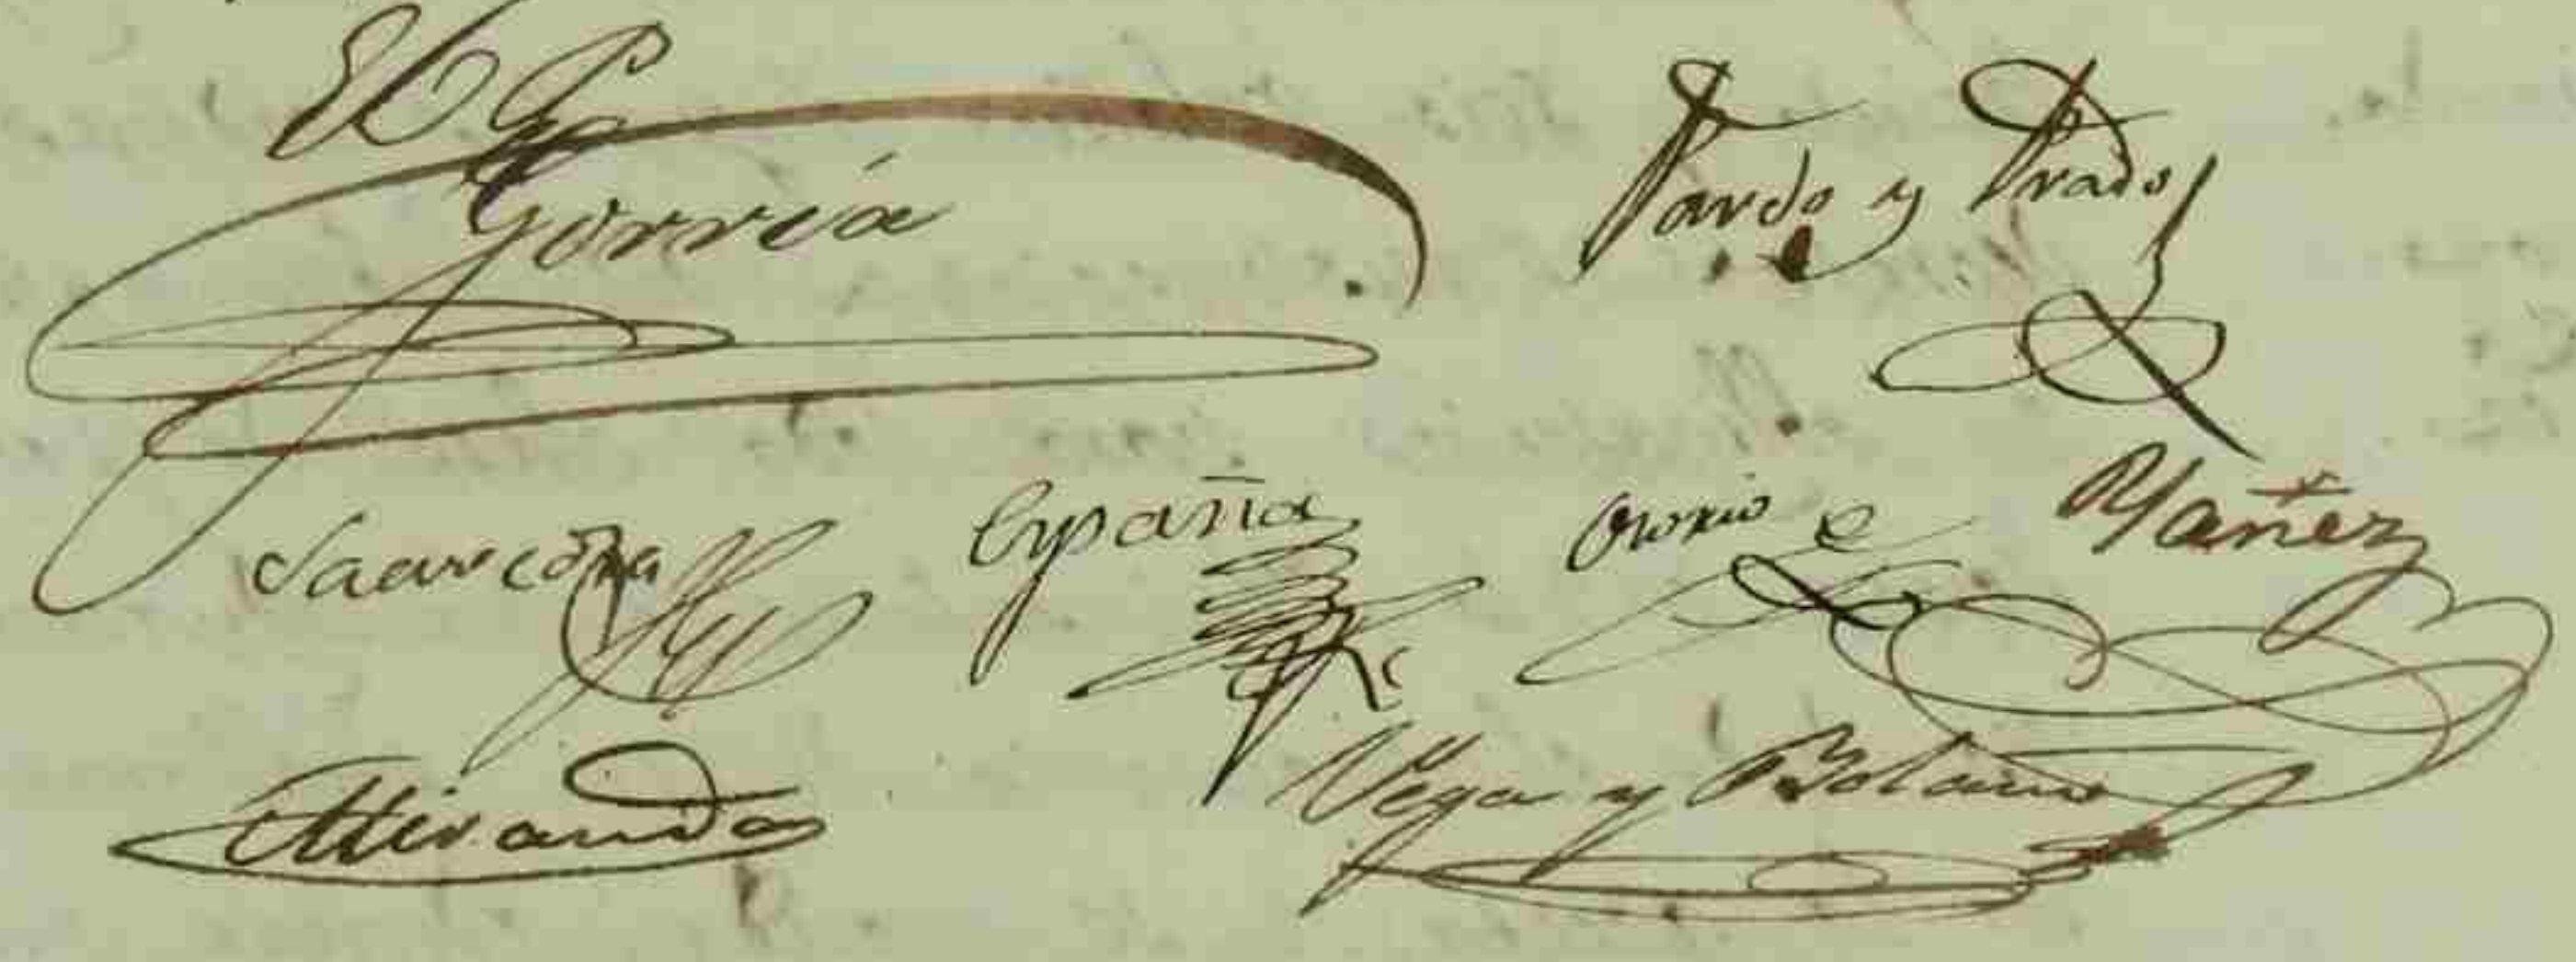 El P.
Gorría
Pardo y Prado
España
Osorio
Yañez
Miranda
Vega y Bolaño